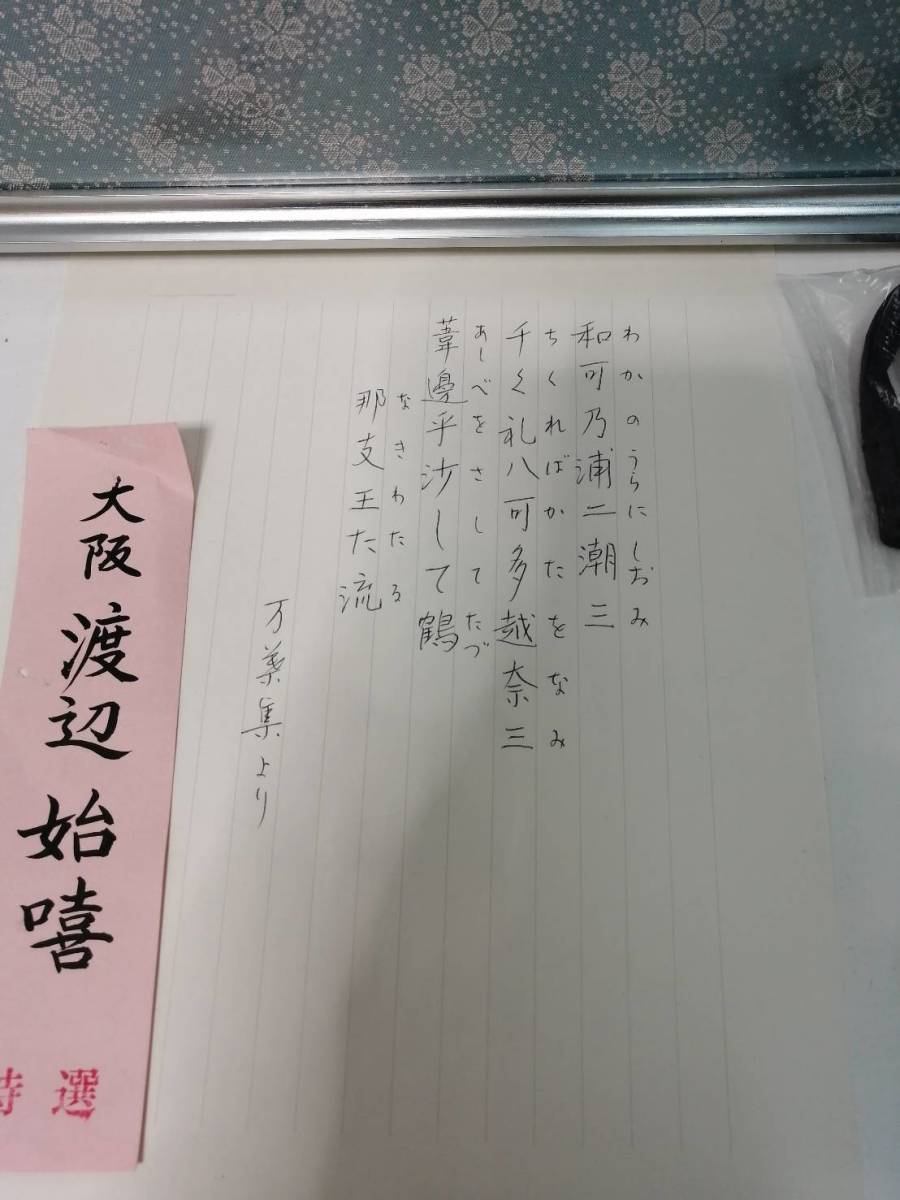 わかのうらにしおみ
和可乃浦二潮三
ちくればかたをなみ
千久礼八可多越奈三
あしべをさしてたづ
葦邊乎沙して鶴
なきわたる
那支王た流
万葉集より
大阪 渡辺 始嘻
特選